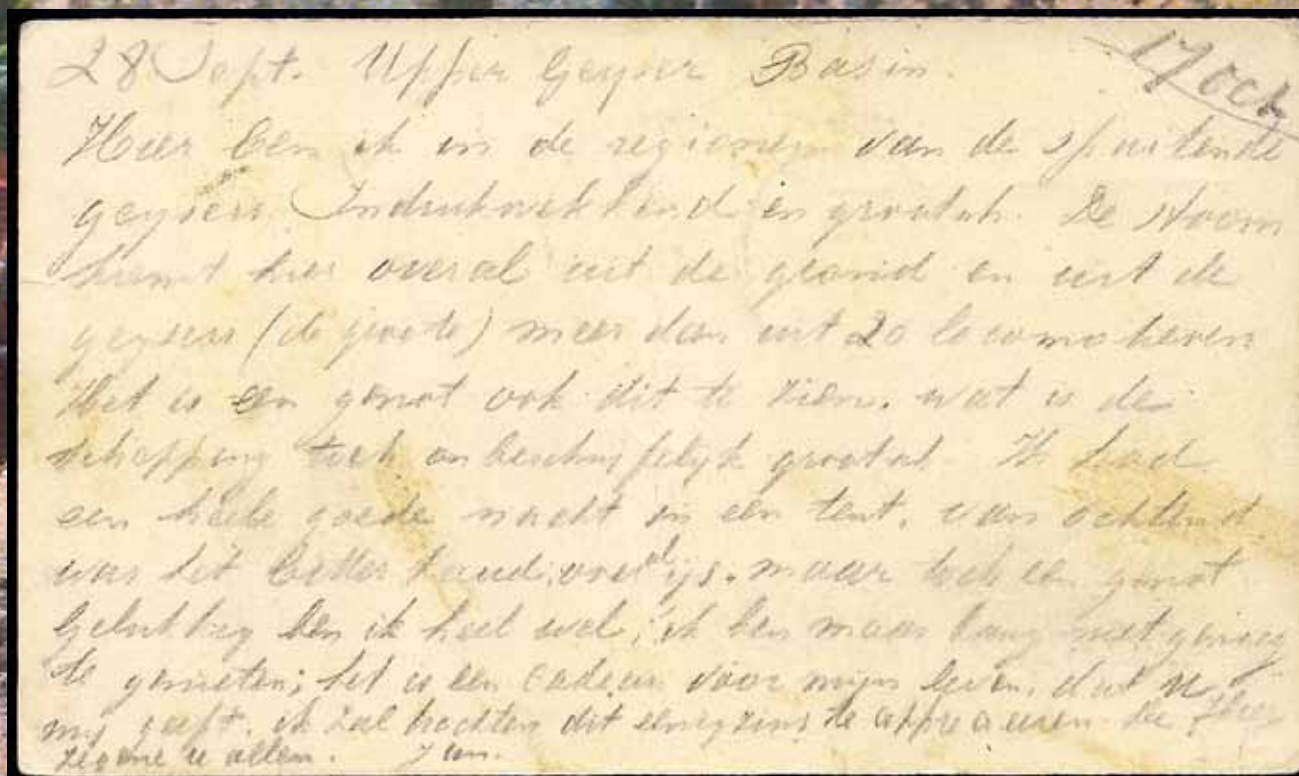 28 Sept. Upper Geyser Basin.
17 Oct
Hier ben ik in de regionen van de spuitende
geysers. Indrukwekkend en grootsch. De stoom
komt hier overal uit de grond en uit de
geysers (de groote) meer dan uit 20 locomotieven
Het is een genot ook dit te zien. wat is de
schepping toch onbeschrijfelijk grootsch. Ik had
een heele goede nacht in een tent. van ochtend
was het bitter koud, ijs. maar toch een genot
Gelukkig ben ik heel wel; ik ben maar bang niet genoeg
te genieten; het is een cadeau voor mijn leven, dat U
mij geeft. ik zal trachten dit eenigzins te apprecieeren. De Heer
zegene u allen. Jan.